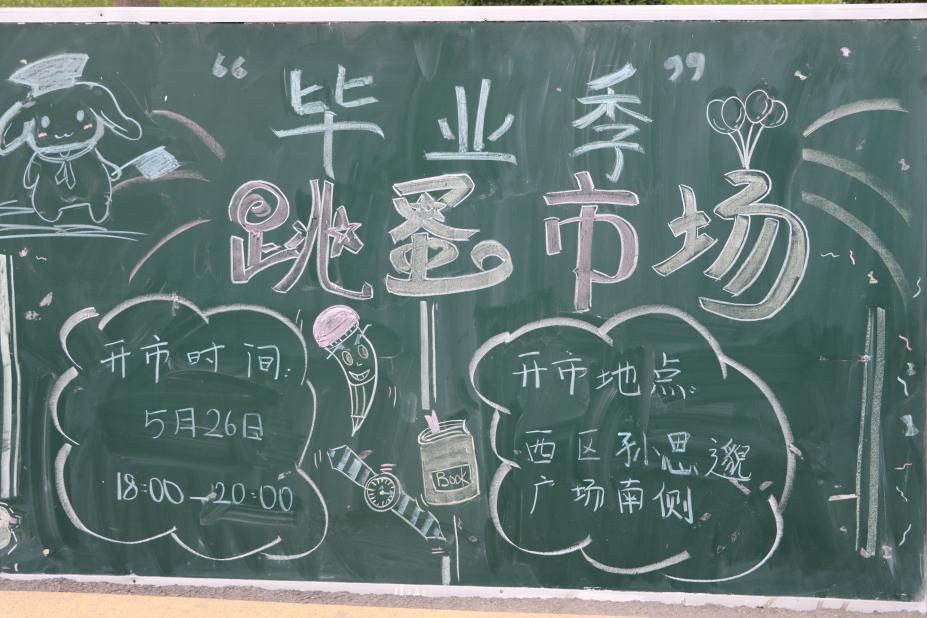 “毕业季”
跳蚤市场
开市时间:
5月26日
18:00—20:00
BOOK
开市地点
西区孙思邈
广场南侧